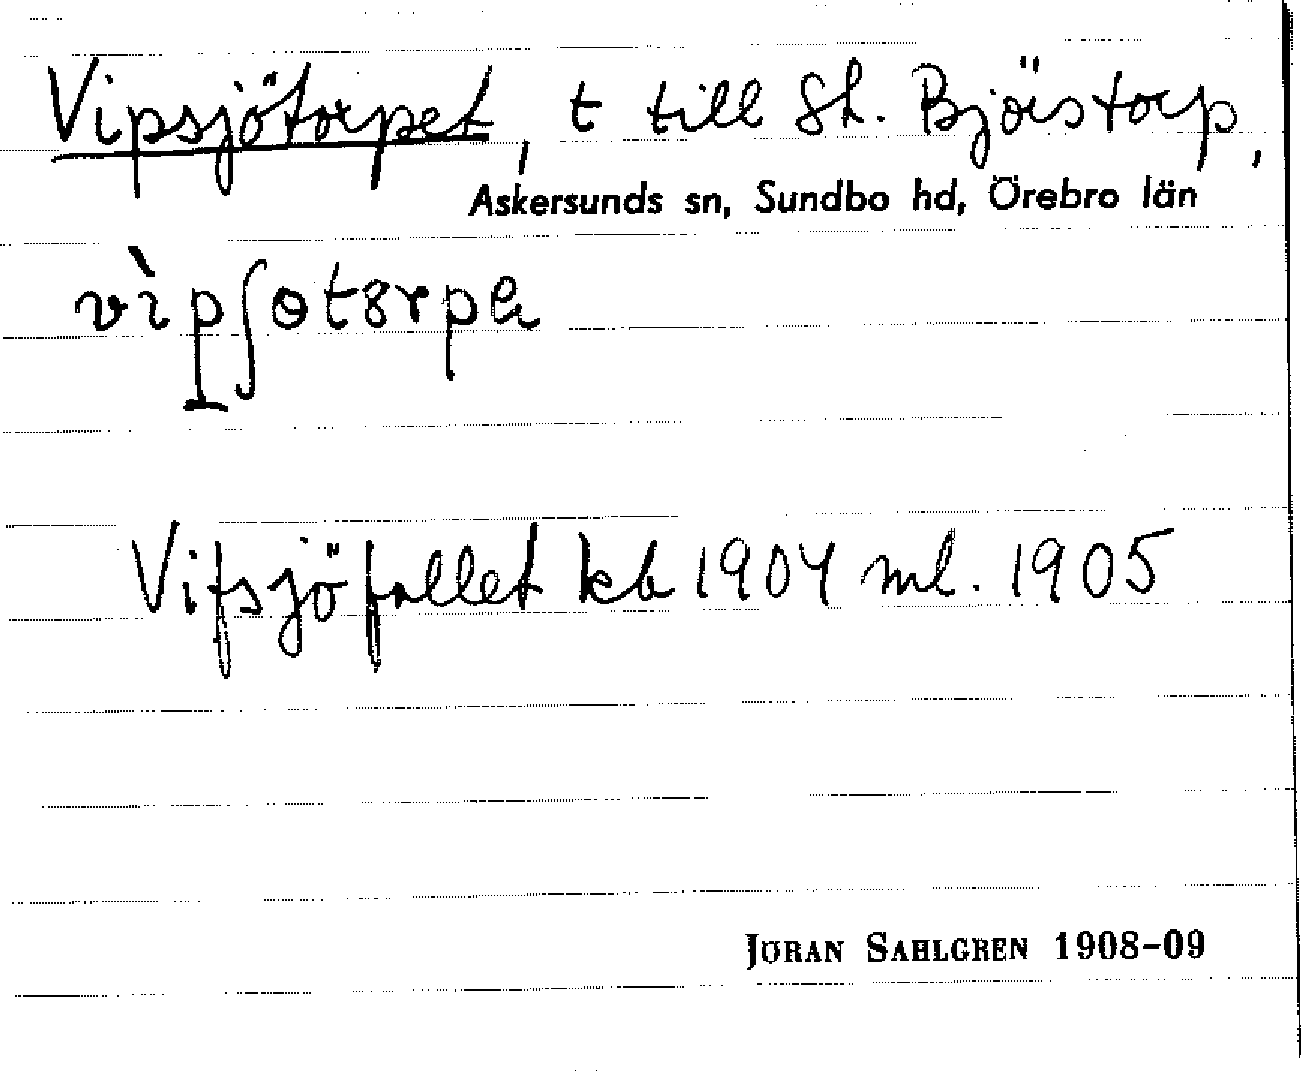 Vipsjötorpet, t till St. Björstorp,
Askersunds sn, Sundbo hd, Örebro län
Vifsjöfallet kb 1904 ml. 1905
JÖRAN SAHLGREN 1908-09